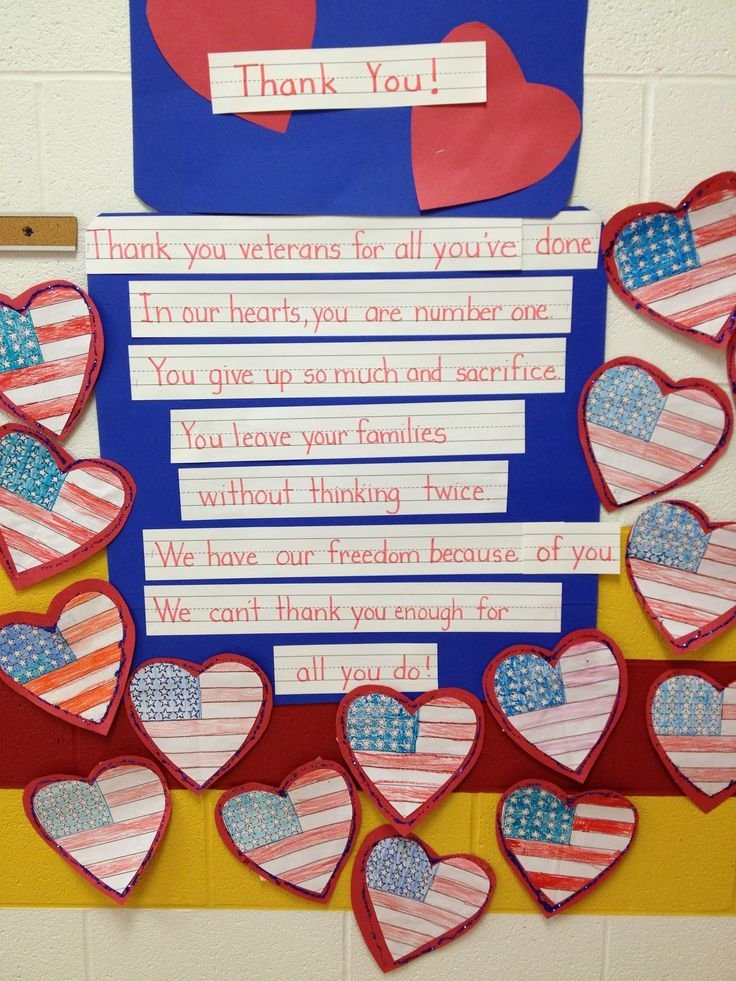 Thank You!
Thank you veterans for all you've done
In our hearts, you are number one.
You give up so much and sacrifice.
You leave your families
without thinking twice.
We have our freedom because of you.
We can't thank you enough for
all you do!